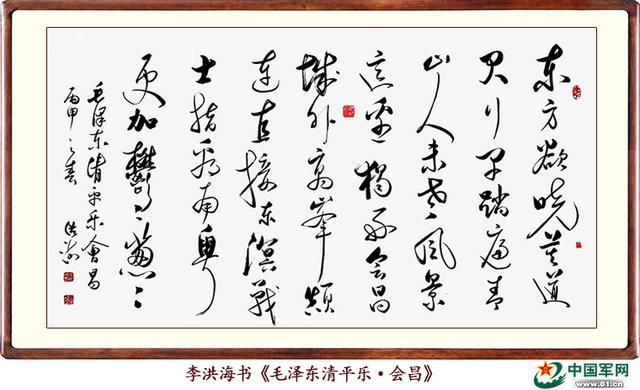 东方欲晓莫道
君行早踏遍青
山人未老风景
这边独好会昌
城外高峯颠
连直接东溟战
士指看南粤
更加鬱〻葱〻
毛泽东清平乐會昌
丙申之春 洪海
李洪海书《毛泽东清平乐·会昌》
中国军网
www.81.cn